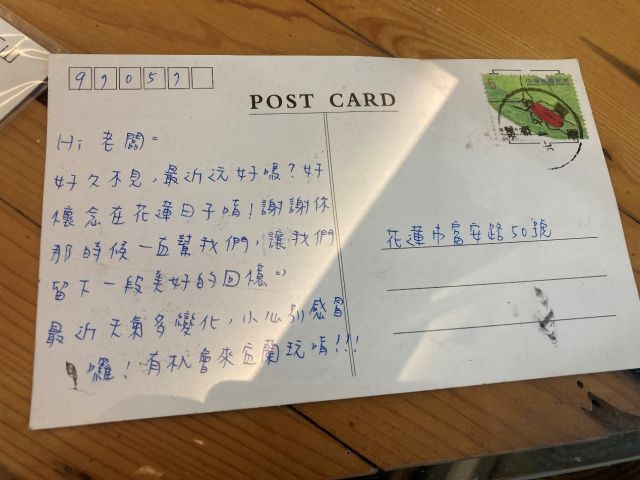 97057
POST CARD
5
Hi 老闆=
好久不見,最近還好嗎?好
懷念在花蓮日子唷!謝謝你
那時候一直幫我們,讓我們
留下一段美好的回憶=)
最近天氣多變化,小心別感冒
囉!有机會來宜蘭玩唷!!!
花蓮市富安路50號